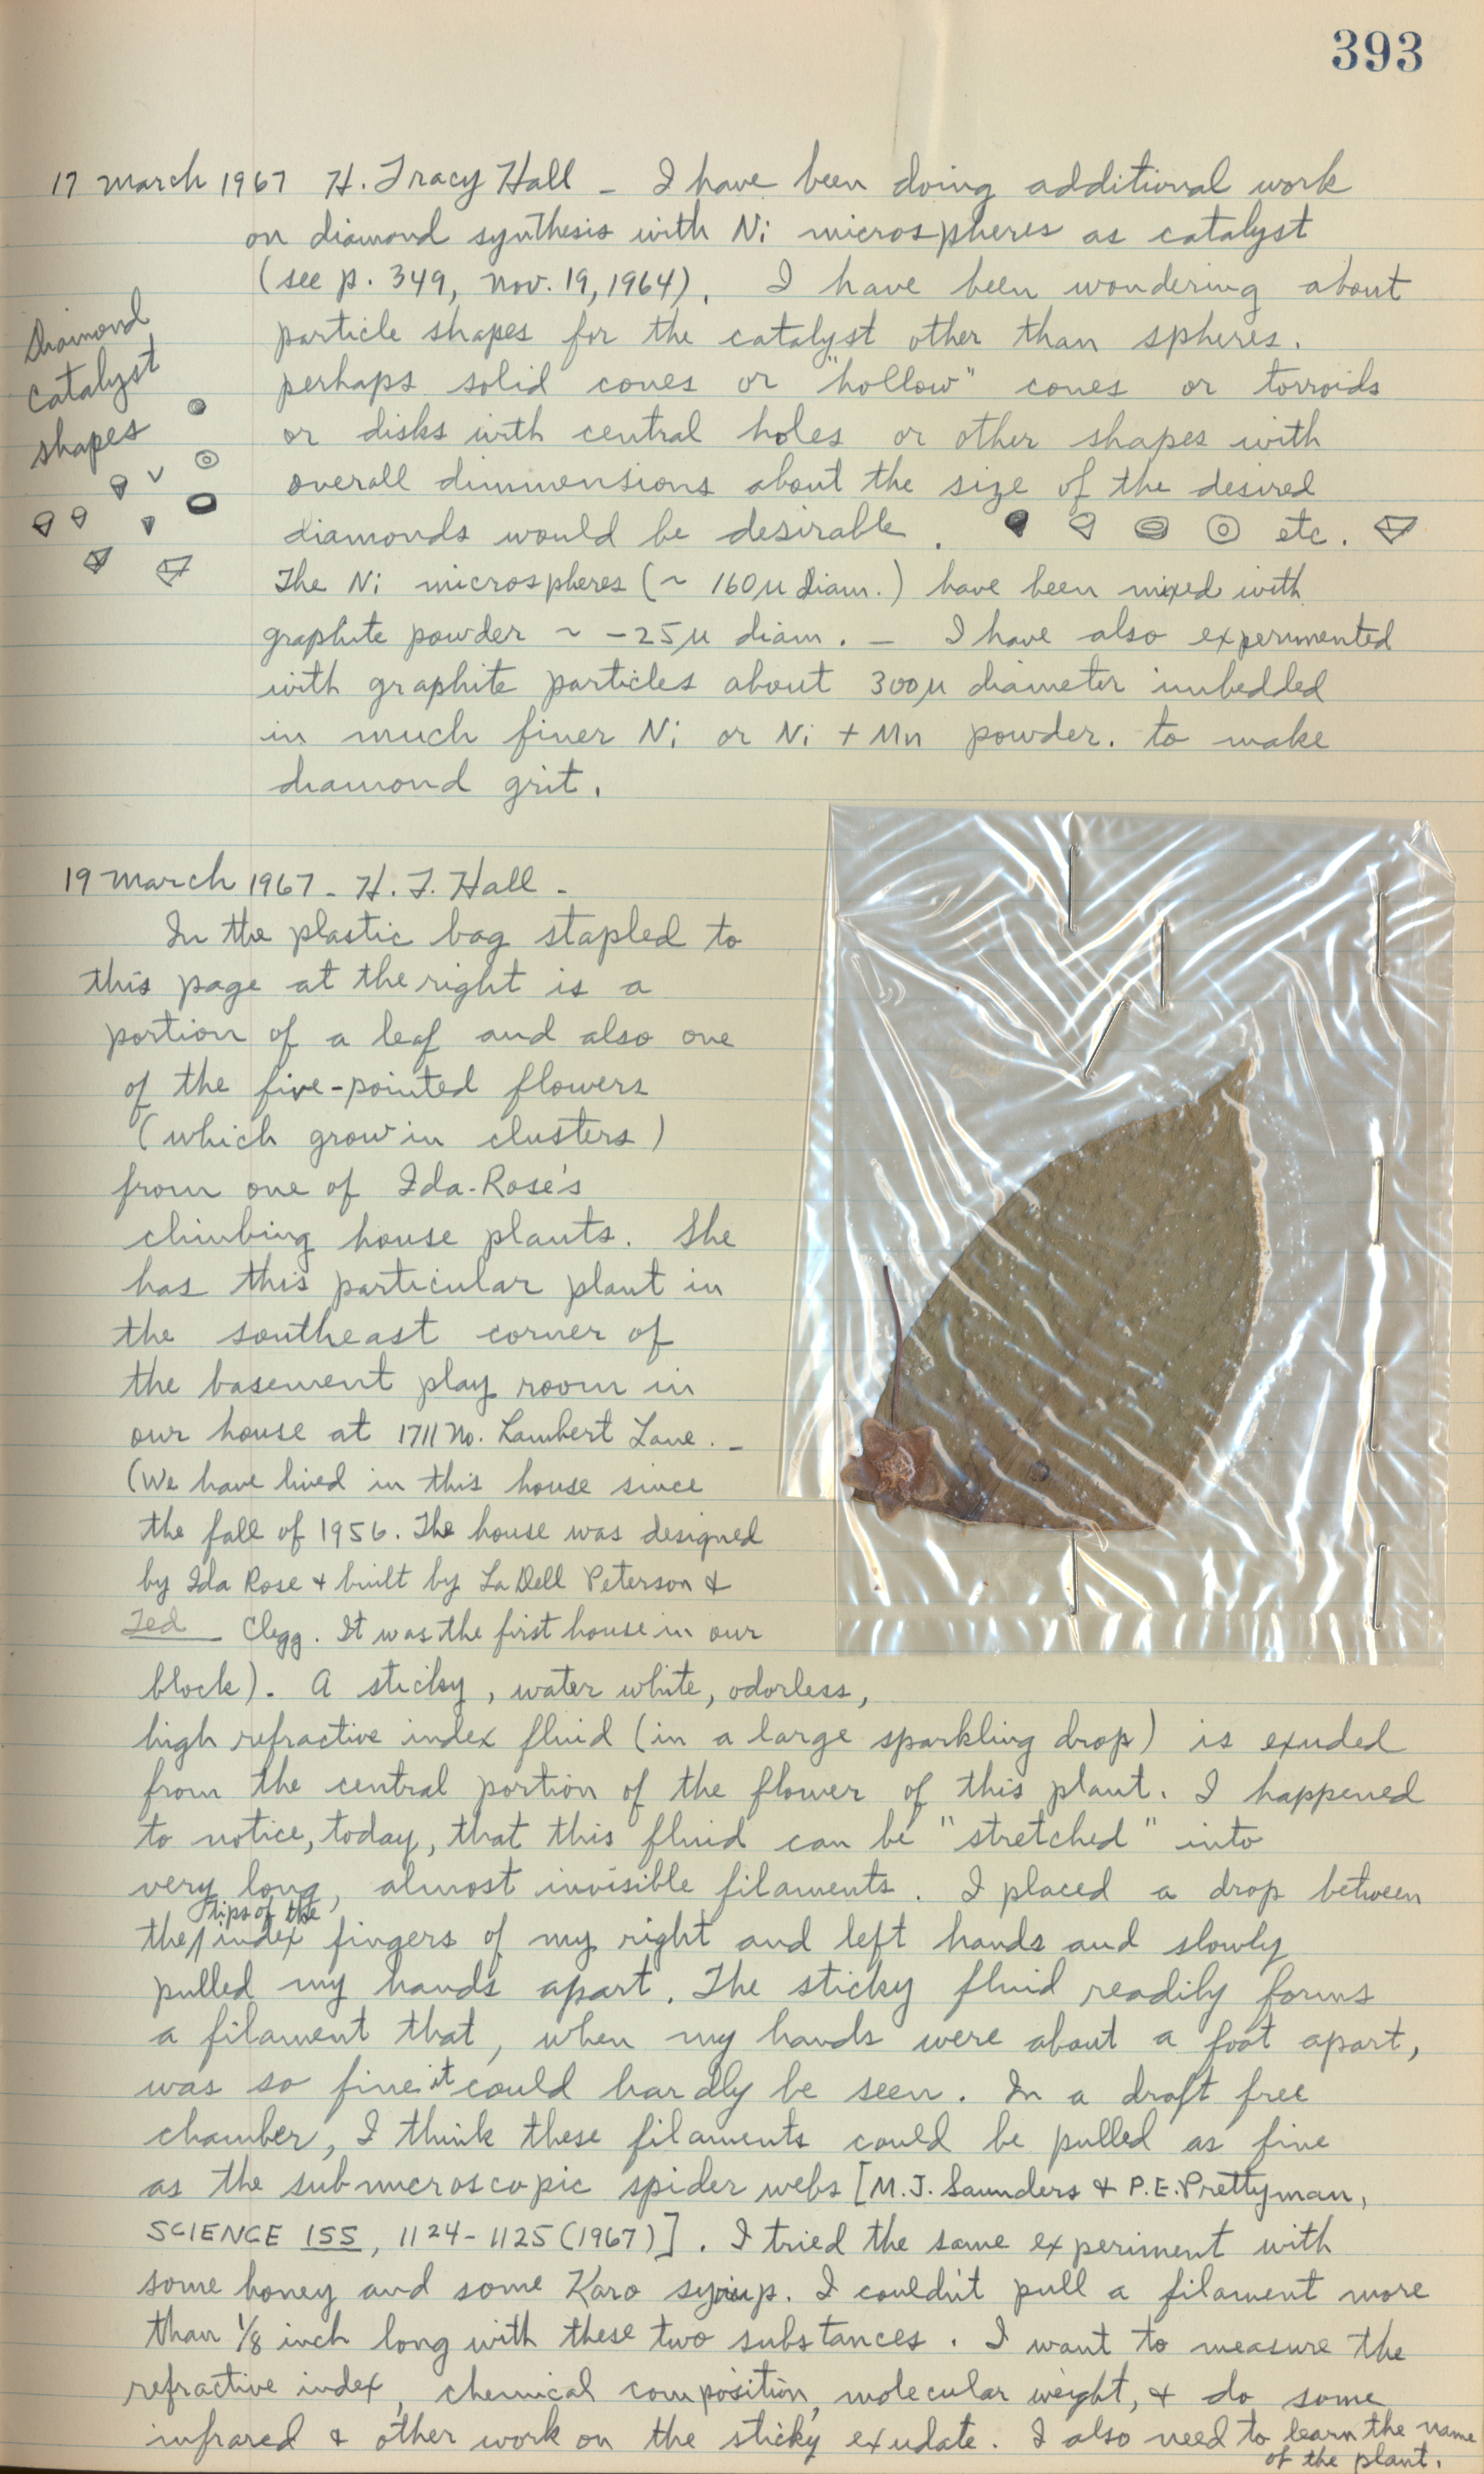 393
17 March 1967 H. Tracy Hall – I have been doing additional work
on diamond synthesis with Ni microspheres as catalyst
(see p. 349, Nov. 19, 1964). I have been wondering about
particle shapes for the catalyst other than spheres.
perhaps solid cones or "hollow" cones or torroids
or disks with central holes or other shapes with
overall dimmensions about the size of the desired
diamonds would be desirable. etc.
Diamond
catalyst
shapes
The Ni microspheres (~ 160μ diam.) have been mixed with
graphite powder ~ -25μ diam. – I have also experimented
with graphite particles about 300μ diameter imbedded
in much finer Ni or Ni + Mn powder. to make
diamond grit.
19 March 1967 – H. T. Hall –
In the plastic bag stapled to
this page at the right is a
portion of a leaf and also one
of the five-pointed flowers
(which grow in clusters)
from one of Ida-Rose's
climbing house plants. She
has this particular plant in
the southeast corner of
the basement play room in
our house at 1711 No. Lambert Lane. –
(We have lived in this house since
the fall of 1956. The house was designed
by Ida Rose + built by LaDell Peterson &
Ted Clegg. It was the first house in our
block). A sticky, water white, odorless,
high refractive index fluid (in a large sparkling drop) is exuded
from the central portion of the flower of this plant. I happened
to notice, today, that this fluid can be "stretched" into
very long, almost invisible filaments. I placed a drop between
the tips of the index fingers of my right and left hands and slowly
pulled my hands apart. The sticky fluid readily forms
a filament that, when my hands were about a foot apart,
was so fine it could hardly be seen. In a draft free
chamber, I think these filaments could be pulled as fine
as the submicroscopic spider webs [M.J. Saunders & P.E. Prettyman,
SCIENCE 155, 1124-1125 (1967)]. I tried the same experiment with
some honey and some Karo syrup. I couldn't pull a filament more
than 1/8 inch long with these two substances. I want to measure the
refractive index, chemical composition, molecular weight, & do some
infrared & other work on the sticky exudate. I also need to learn the name
of the plant.